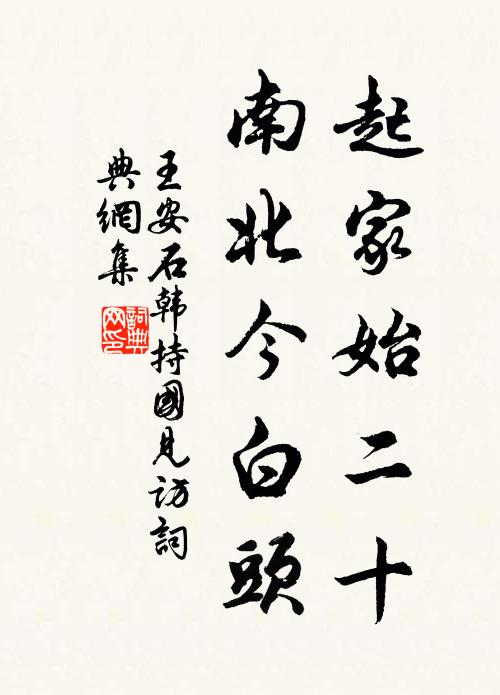 起家始二十
南北今白頭
王安石韩持國見访詞
典網集
詞典
网印